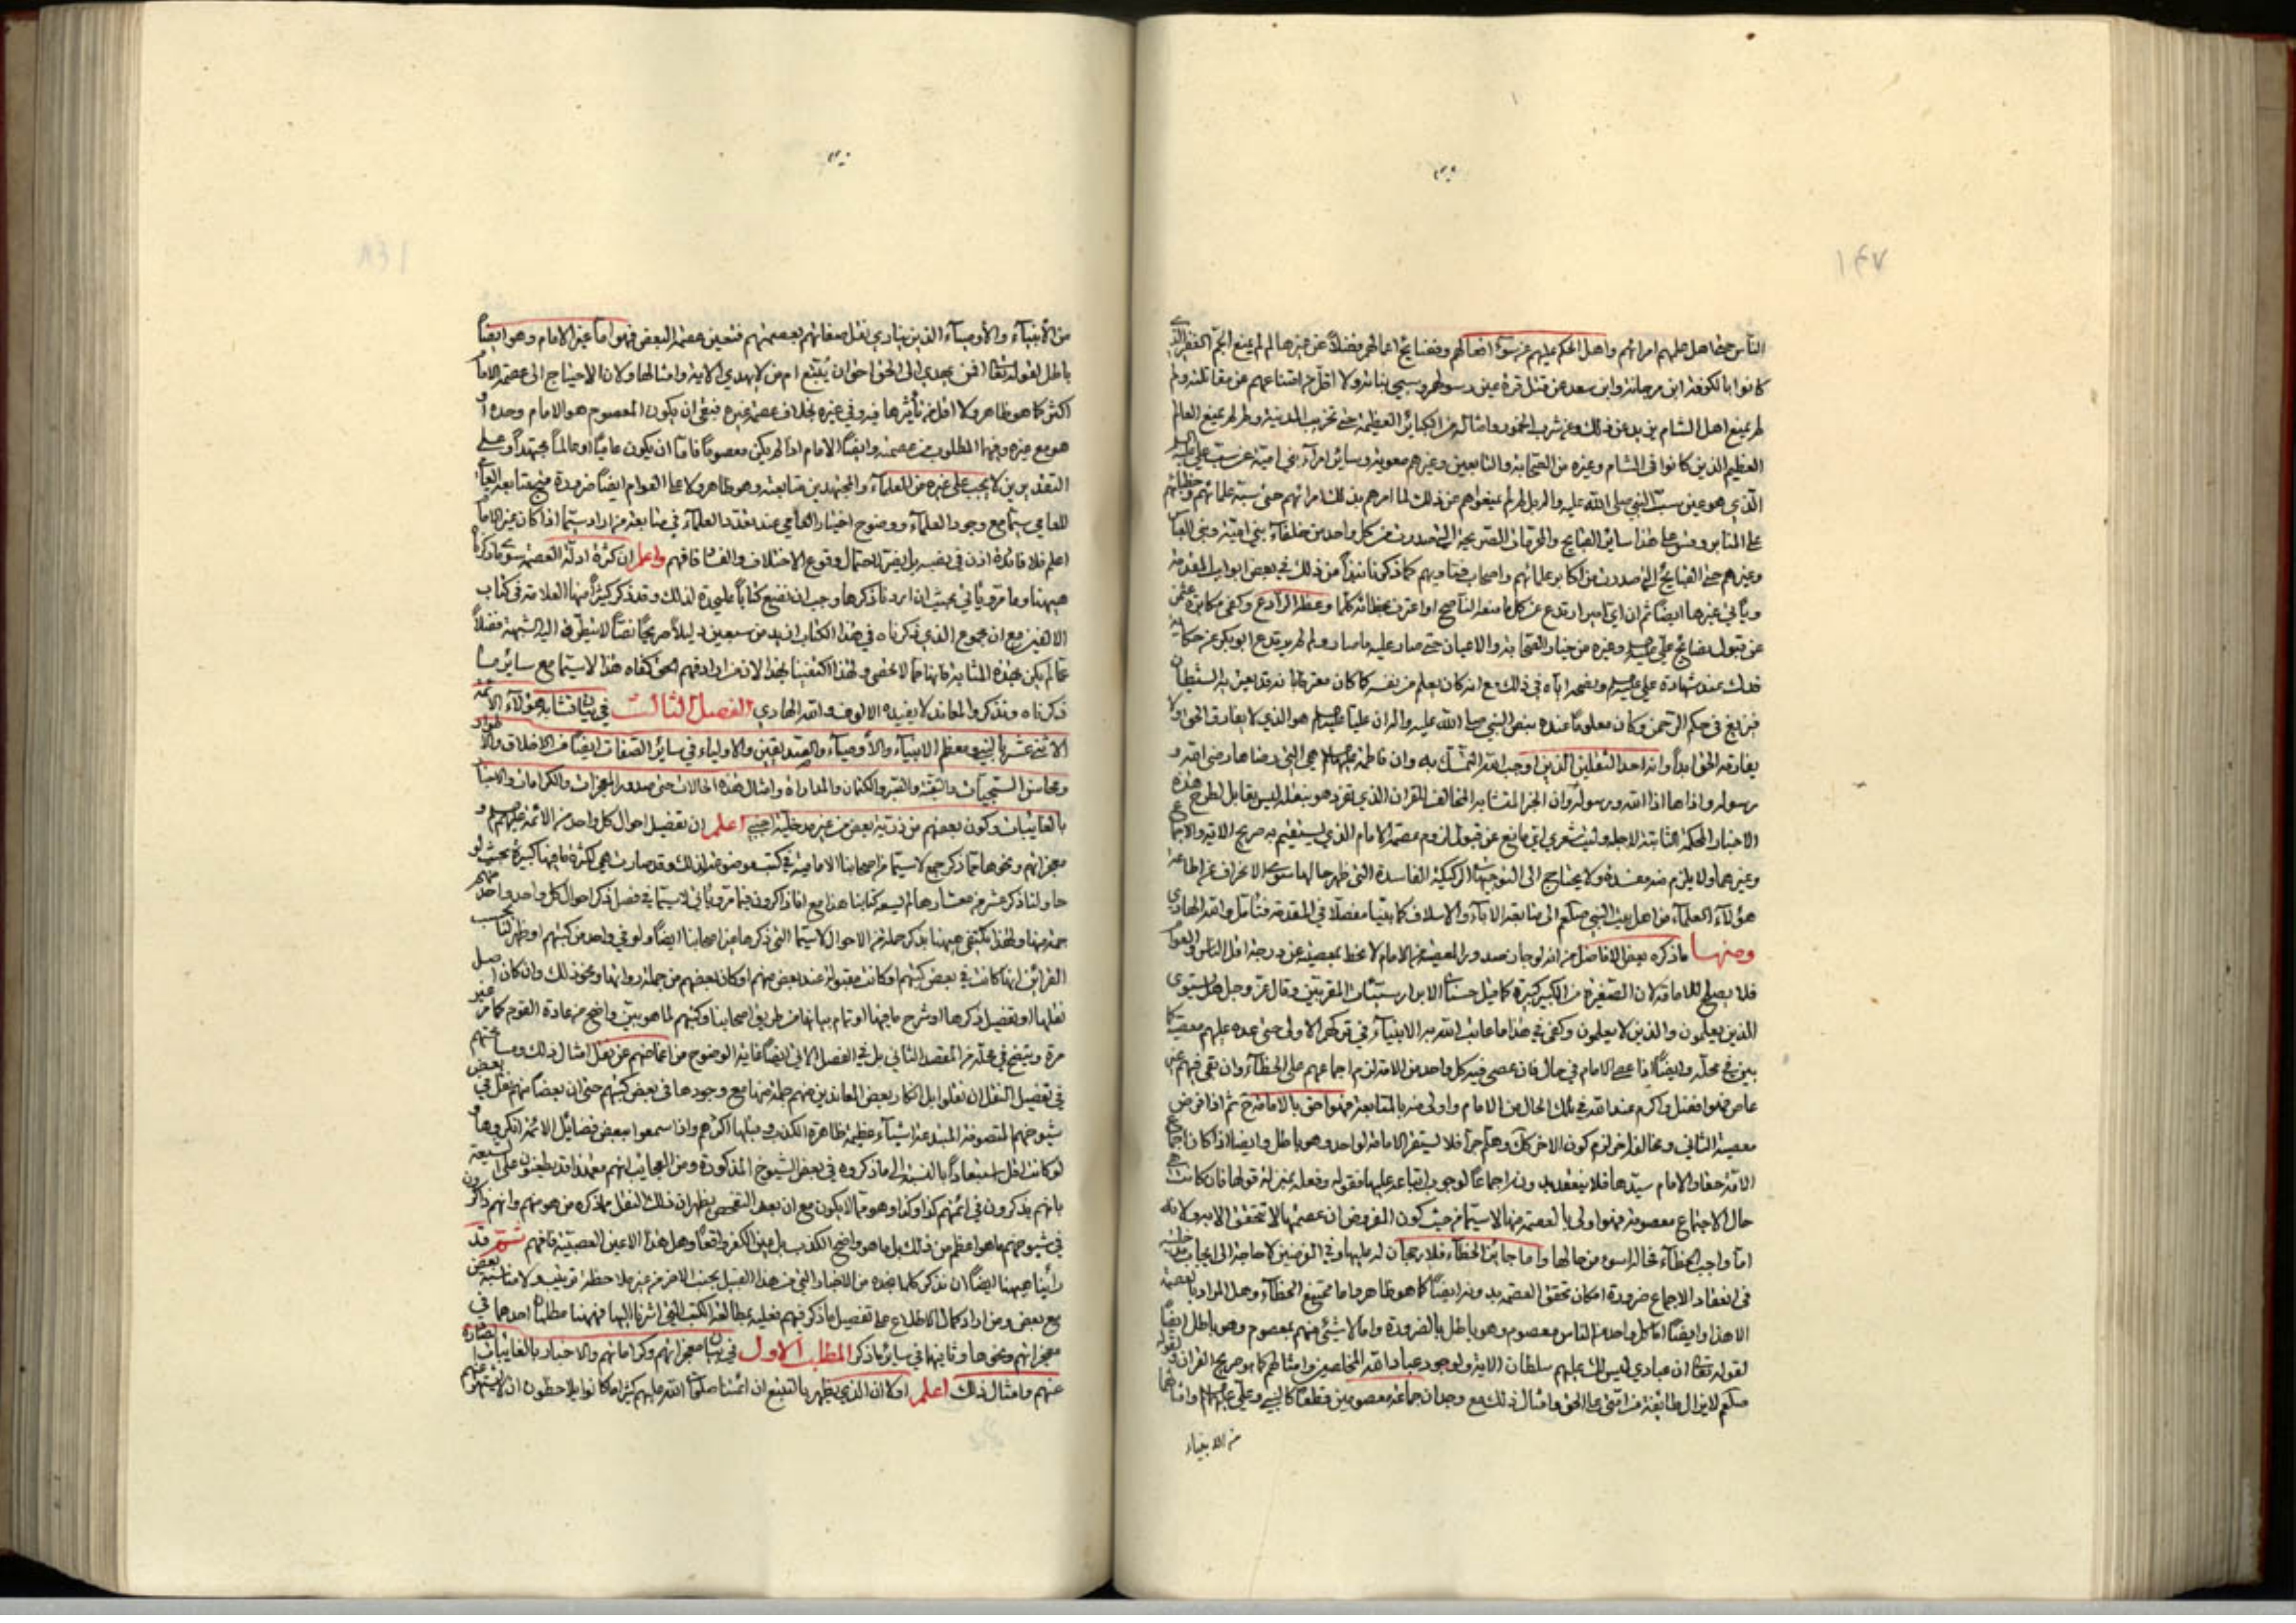 ١٤٧
الناس حتى اهل حلهم امرائهم واهل الحكم عليهم عن سوء افعالهم وفضايح اعمالهم فضلاً عن غيرها لم لم يمنع الجم الغفير الذين
كانوا بالكوفة ابن مرجانة وابن سعد عن قتل قرة عين رسولهم وسبي بناته ولا اقل من امتناعهم عن مقاتلته ولم
لم يمنع اهل الشام يزيد عن ذلك وعن شرب الخمور وامثاله من الكباير العظيمة حتى تخريب المدينة ولم لم يمنع العالم
العظيم الذين كانوا فى الشام وغيره من الصحابة والتابعين وغيرهم معوية وساير امراء بني امية عن سب علي عليه السلم
الذي هو عين سب النبي صلى الله عليه واله بل لم لم يمنعوهم عن ذلك لما امرهم بذلك امرائهم حتى سبه علمائهم وخطبائهم
على المنابر وقس على هذا ساير القبايح والخرافات الصريحة التي صدرت من كل واحد من خلفاء بني امية وبني العباس
وغيرهم حتى القبايح التي صدرت من اكابر علمائهم واصحاب فتاويهم كما ذكرنا نبذاً من ذلك في بعض ابواب المقدمة
ويأتي غيرها ايضاً ثم ان اي امير ارتدع عن كل ما منعه الناصح او اعترف بخطائه كلما وعظه الرادع وكفى مكابرة عثمن
عن قبول نصائح علي عليه السلم وغيره من خيار الصحابة والاعيان حتى صار عليه ما صار ولم لم يرتدع ابو بكر عن حكاية
فدك بعد شهادة علي عليه السلم ونصحه اياه في ذلك مع انه كان يعلم من نفسه كما كان معترفا بانه قد يعتريه الشيطان
فيزيغ فى حكم الرحمن وكان معلوماً عنده بنص النبي صلى الله عليه واله ان علياً عليه السلم هو الذي لا يفارق الحق ولا
يفارقه الحق ابداً وانه احد الثقلين الذين اوجب الله التمسك به وان فاطمة عليها السلم هي التي رضاها رضى الله و
رسوله واذاها اذا الله ورسوله وان الخبر المتشابه المخالف للقران الذي تفرد هو بنقله ليس يقابل لطرح هذه
الاخبار المحكمة الثابتة لاجله وليت شعري اي مانع عن قبول لزوم عصمة الامام الذي يستقيم به صريح الاية والاجماع
وغيرهما ولا يلزم منه مفسدة ولا يحتاج الى التوجيهات الركيكة الفاسدة التي ظهر حالها سوى الانحراف عن اطاعة
هؤلاء العلماء من اهل بيت النبي صلعم الى متابعة الاباء والاسلاف كما بينا مفصلاً في المقدمة فتامل والله الهادي
ومنها ما ذكره بعض الافاضل من انه لو جاز صدور المعصية عن الامام لانحط بمعصيته عن درجة اقل الناس والعوام
فلا يصلح للامامة لان الصغيرة من الكبير كبيرة كما قيل حسنات الابرار سيئات المقربين وقال عز وجل هل يستوي
الذين يعلمون والذين لا يعلمون وكفى في هذا ما عاتب الله به الانبياء في تركهم الاولى حتى عده عليهم معصية كما
بين في محله وايضاً اذا عصى الامام في حال فان عصى فيه كل واحد من الامة لزم اجماعهم على الخطاء وان بقي فيهم غير
عاص فهو افضل واكرم عند الله في تلك الحال من الامام واولى منه بالمتابعة فهو احق بالامامة ح ثم اذا فرض
معصية الثاني ومخالفة اخر لزم كون الاخر كك وهلم جرا فلا يستقر الامامة لواحد وهو باطل وايضا اذا كان اجماع
الامة حقا والامام سيدها فلا ينعقد بدونه اجماعاً لوجوب اتباعه عليها فقوله وفعله بمنزلة قولها فان كانت هي
حال الاجتماع معصومة فهو اولى بالعصمة منها لاسيما من حيث كون المفروض ان عصمتها لا تتحقق الا به ولانه
اما واجب الخطاء فحاله اسوء من حالها واما جائز الخطاء فلا رجحان له عليها وفي الفرضين لا حاجة الى ايجاب مدخليته
فى انعقاد الاجماع ضرورة امكان تحقق العصمة بدونه ايضاً كما هو ظاهر واما ممتنع الخطاء وهل المراد بالعصمة
الا هذا وايضاً اما كل واحد من الناس معصوم وهو باطل بالضرورة واما لا شئ منهم بمعصوم وهو باطل ايضاً
لقوله تعالى ان عبادي ليس لك عليهم سلطان الاية ولوجود عباد الله المخلصين وامثالهم كما هو صريح القران ولقوله
صلعم لا يزال طائفة من امتي على الحق وامثال ذلك مع وجدان جماعة معصومين قطعاً كالنبي وعلي عليهما السلم وامثالهما
من الانبياء
من الأنبياء والأوصياء الذين ينادي نقل صفاتهم بعصمتهم فتعين عصمة البعض فهو اما غير الامام وهو ايضاً
باطل لقوله تعالى افمن يهدي الى الحق احق ان يتبع ام من لا يهدي الاية وامثالها ولان الاحتياج الى عصمة الامام
اكثر كما هو ظاهر ولا اقل من تأثيرها فيه وفي غيره بخلاف عصمة غيره فبقي ان يكون المعصوم هو الامام وحده او
هو مع غيره وفيهما المطلوب من عصمته وايضاً الامام اذا لم يكن معصوماً فاما ان يكون عامياً او عالماً مجتهداً وعلى
التقديرين لا يجب على غيره من العلماء والمجتهدين متابعته وهو ظاهر ولا على العوام ايضاً ضرورة منع متابعة العامي
للعامي سيما مع وجود العلماء ووضوح اختيار العامي عند تعدد العلماء في متابعة من اراد سيما اذا كان غير الامام
اعلم فلا فائدة اذن في نصبه بل يضر لاحتمال وقوع الاختلاف والفساد فافهم واعلم ان كثرة ادلة العصمة سوى ما ذكرنا
هيهنا وما مر ويأتي بحيث ان اردنا ذكرها وجب ان نضع كتاباً عليحدة لذلك وقد ذكر كثيراً منها العلامة فى كتاب
الالفين مع ان مجموع الذي ذكرناه في هذا الكتاب ازيد من سبعين دليلاً صريحاً نصاً لا يتطرق اليه الشبهة فضلاً
عما لم يكن بهذه المثابة فانها مما لا تحصى ولهذا اكتفينا بهذا لان من اراد فهم الحق كفاه هذا لاسيما مع ساير ما
ذكرناه ونذكر والمعاند لا يفيده الالوف والله الهادي الفصل الثالث في بيان تشابه هؤلاء الائمة
الاثني عشر بالنبي ومعظم الانبياء والأوصياء والصديقين والاولياء في ساير الصفات ايضاً من الاخلاق والاطوار
ومحاسن السجيات والتقية والستر والكتمان والمداراة وامثال هذه الحالات حتى صدور المعجزات والكرامات والانباء
بالغايبات وكون بعضهم من ذرية بعض من غير مدخلية اجنبي اعلم ان تفصيل احوال كل واحد من الائمة عليهم السلم و
معجزاتهم ونحوها مما ذكر جمع لاسيما من اصحابنا الامامية في كتب موضوعة لذلك وقد صارت هي لكثرة ما فيها كبيرة بحيث لو
حاولنا ذكر عشر من معشارها لم يسعه كتابنا هذا مع انا ذاكرون فيما مر ويأتي لاسيما في فصل ذكر احوال كل واحد واحد منهم
جمة منها ولهذا نكتفي هيهنا بذكر جملة من الاحوال لاسيما التي ذكرها غير اصحابنا ايضاً ولو في واحد من كتبهم او ظهر لنا بحسب
القرائن انها كانت في بعض كتبهم او كانت مقبولة عند بعض منهم او كان بعضهم من جملة رواتها ونحو ذلك وان كان اصل
نقلها او تفصيل ذكرها او شرح ما فيها او تمام بيانها من طريق اصحابنا وكتبهم لما هو بين واضح من عادة القوم كما مر غير
مرة ويتضح في محله من المقصد الثاني بل في الفصل الاتي ايضاً غاية الوضوح من اغماضهم عن نقل امثال ذلك ومسامحتهم
في تفصيل النقل ان نقلوا بل انكار بعض المعاندين منهم جملة منها مع وجودها فى بعض كتبهم حتى ان بعضاً منهم نقل في بعض
شيوخهم المتصوفة المبتدعة اشياء عظيمة ظاهرة الكذب وقبلها اكثرهم واذا سمعوا ببعض فضائل الائمة انكروها و
لو كانت اقل استبعاداً بالنسبة الى ما ذكروه في بعض الشيوخ المذكورة ومن العجايب انهم معهذا قد يطعنون على الشيعة
بانهم يذكرون في ائمتهم كذا وكذا وهو مما لا يكون مع ان بعد التفحص يظهر ان ذلك النقل مما ذكره من هو منهم وانهم ذاكرون
في شيوخهم ما هو اعظم من ذلك بل ما هو واضح الكذب بل عين الكفر واقعاً وهل هذا الا عين العصبية فافهم ثم قد
رأينا هيهنا ايضاً ان نذكر كلما نجده من الاخبار التي من هذا القبيل بجنب الاخر من غير ملاحظة ترتيب ولا مناسبة بعض
مع بعض ومن اراد كمال الاطلاع على تفصيل ما ذكر فيهم فعليه بمطالعة الكتب التي اشرنا اليها فههنا مطلبان احدهما في
معجزاتهم ونحوها وثانيهما في ساير ما ذكر المطلب الاول في بيان معجزاتهم وكراماتهم والاخبار بالغايبات الصادرة
عنهم وامثال ذلك اعلم اولا ان الذي يظهر بالتتبع ان ائمتنا صلوات الله عليهم كثيرا ما كانوا يلاحظون ان لا يشتهر عنهم